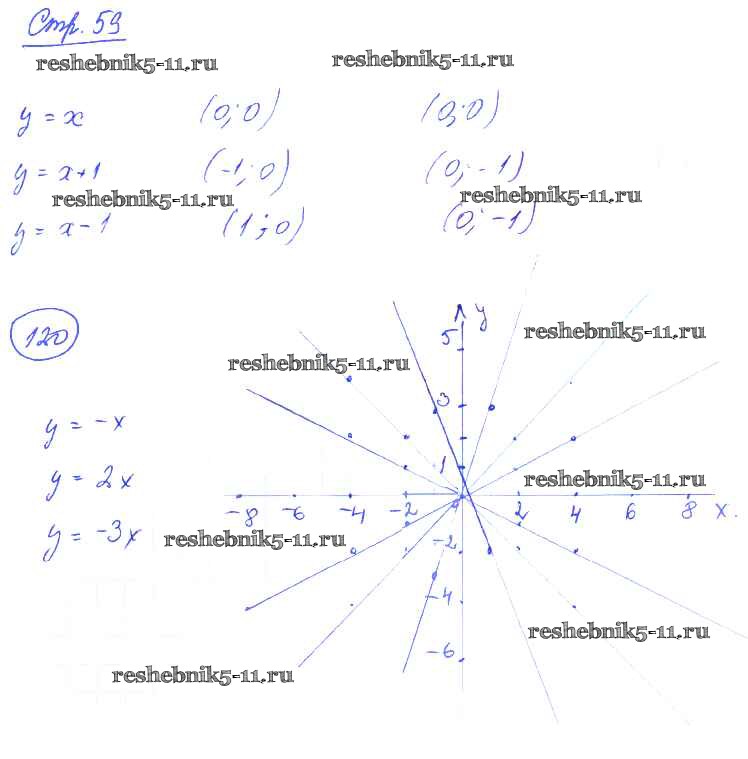 Стр. 59
reshebnik5-11.ru reshebnik5-11.ru
y = x (0; 0) (0; 0)
y = x+1 (-1; 0) (0; -1)
reshebnik5-11.ru reshebnik5-11.ru
y = x-1 (1; 0) (0; -1)
120
y
5
reshebnik5-11.ru
reshebnik5-11.ru
3
y = -x
1
y = 2x
reshebnik5-11.ru
-8 -6 -4 -2 0 2 4 6 8 x.
y = -3x
reshebnik5-11.ru
-2
-4
reshebnik5-11.ru
-6
reshebnik5-11.ru